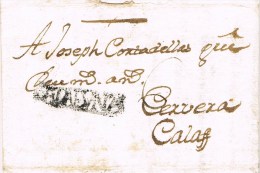 A Joseph Cortadellas que
Dios m. an.
Cervera
Calaff